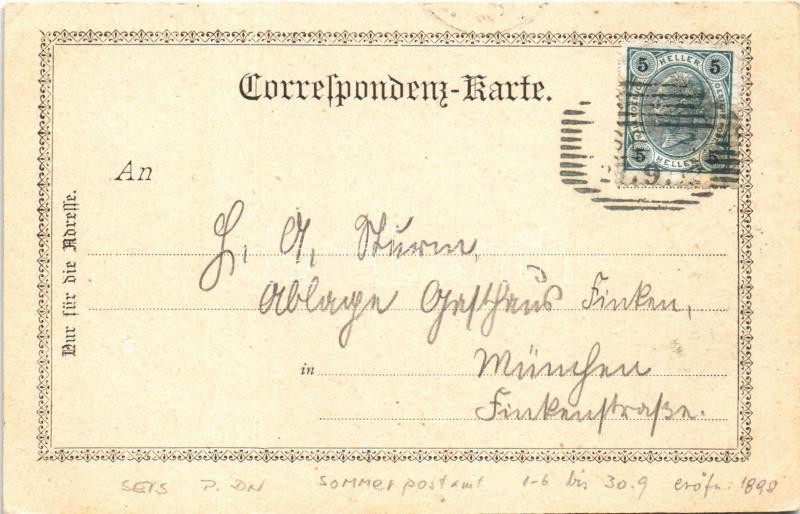 Correſpondenz-Karte.
5 HELLER 5
5 HELLER 5
. 9.
An
Nur für die Adreſſe.
H. A. Sturm,
Ablage Gasthaus Finken,
in München
Finkenstraße.
SEIS P. DN Sommerpostamt 1-6 bis 30.9 eröfn: 1898